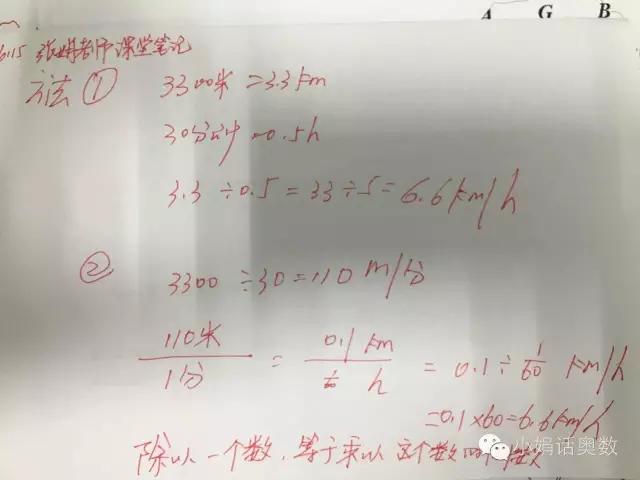 A G B
6.15 张娟老师课堂笔记
方法① 3300米=3.3km
30分钟=0.5h
3.3÷0.5=33÷5=6.6km/h
② 3300÷30=110m/分
110米/1分 = 0.1km/(1/60)h = 0.1÷1/60 km/h
=0.1×60=6.6km/h
除以一个数,等于乘以这个数的倒数
小娟话奥数